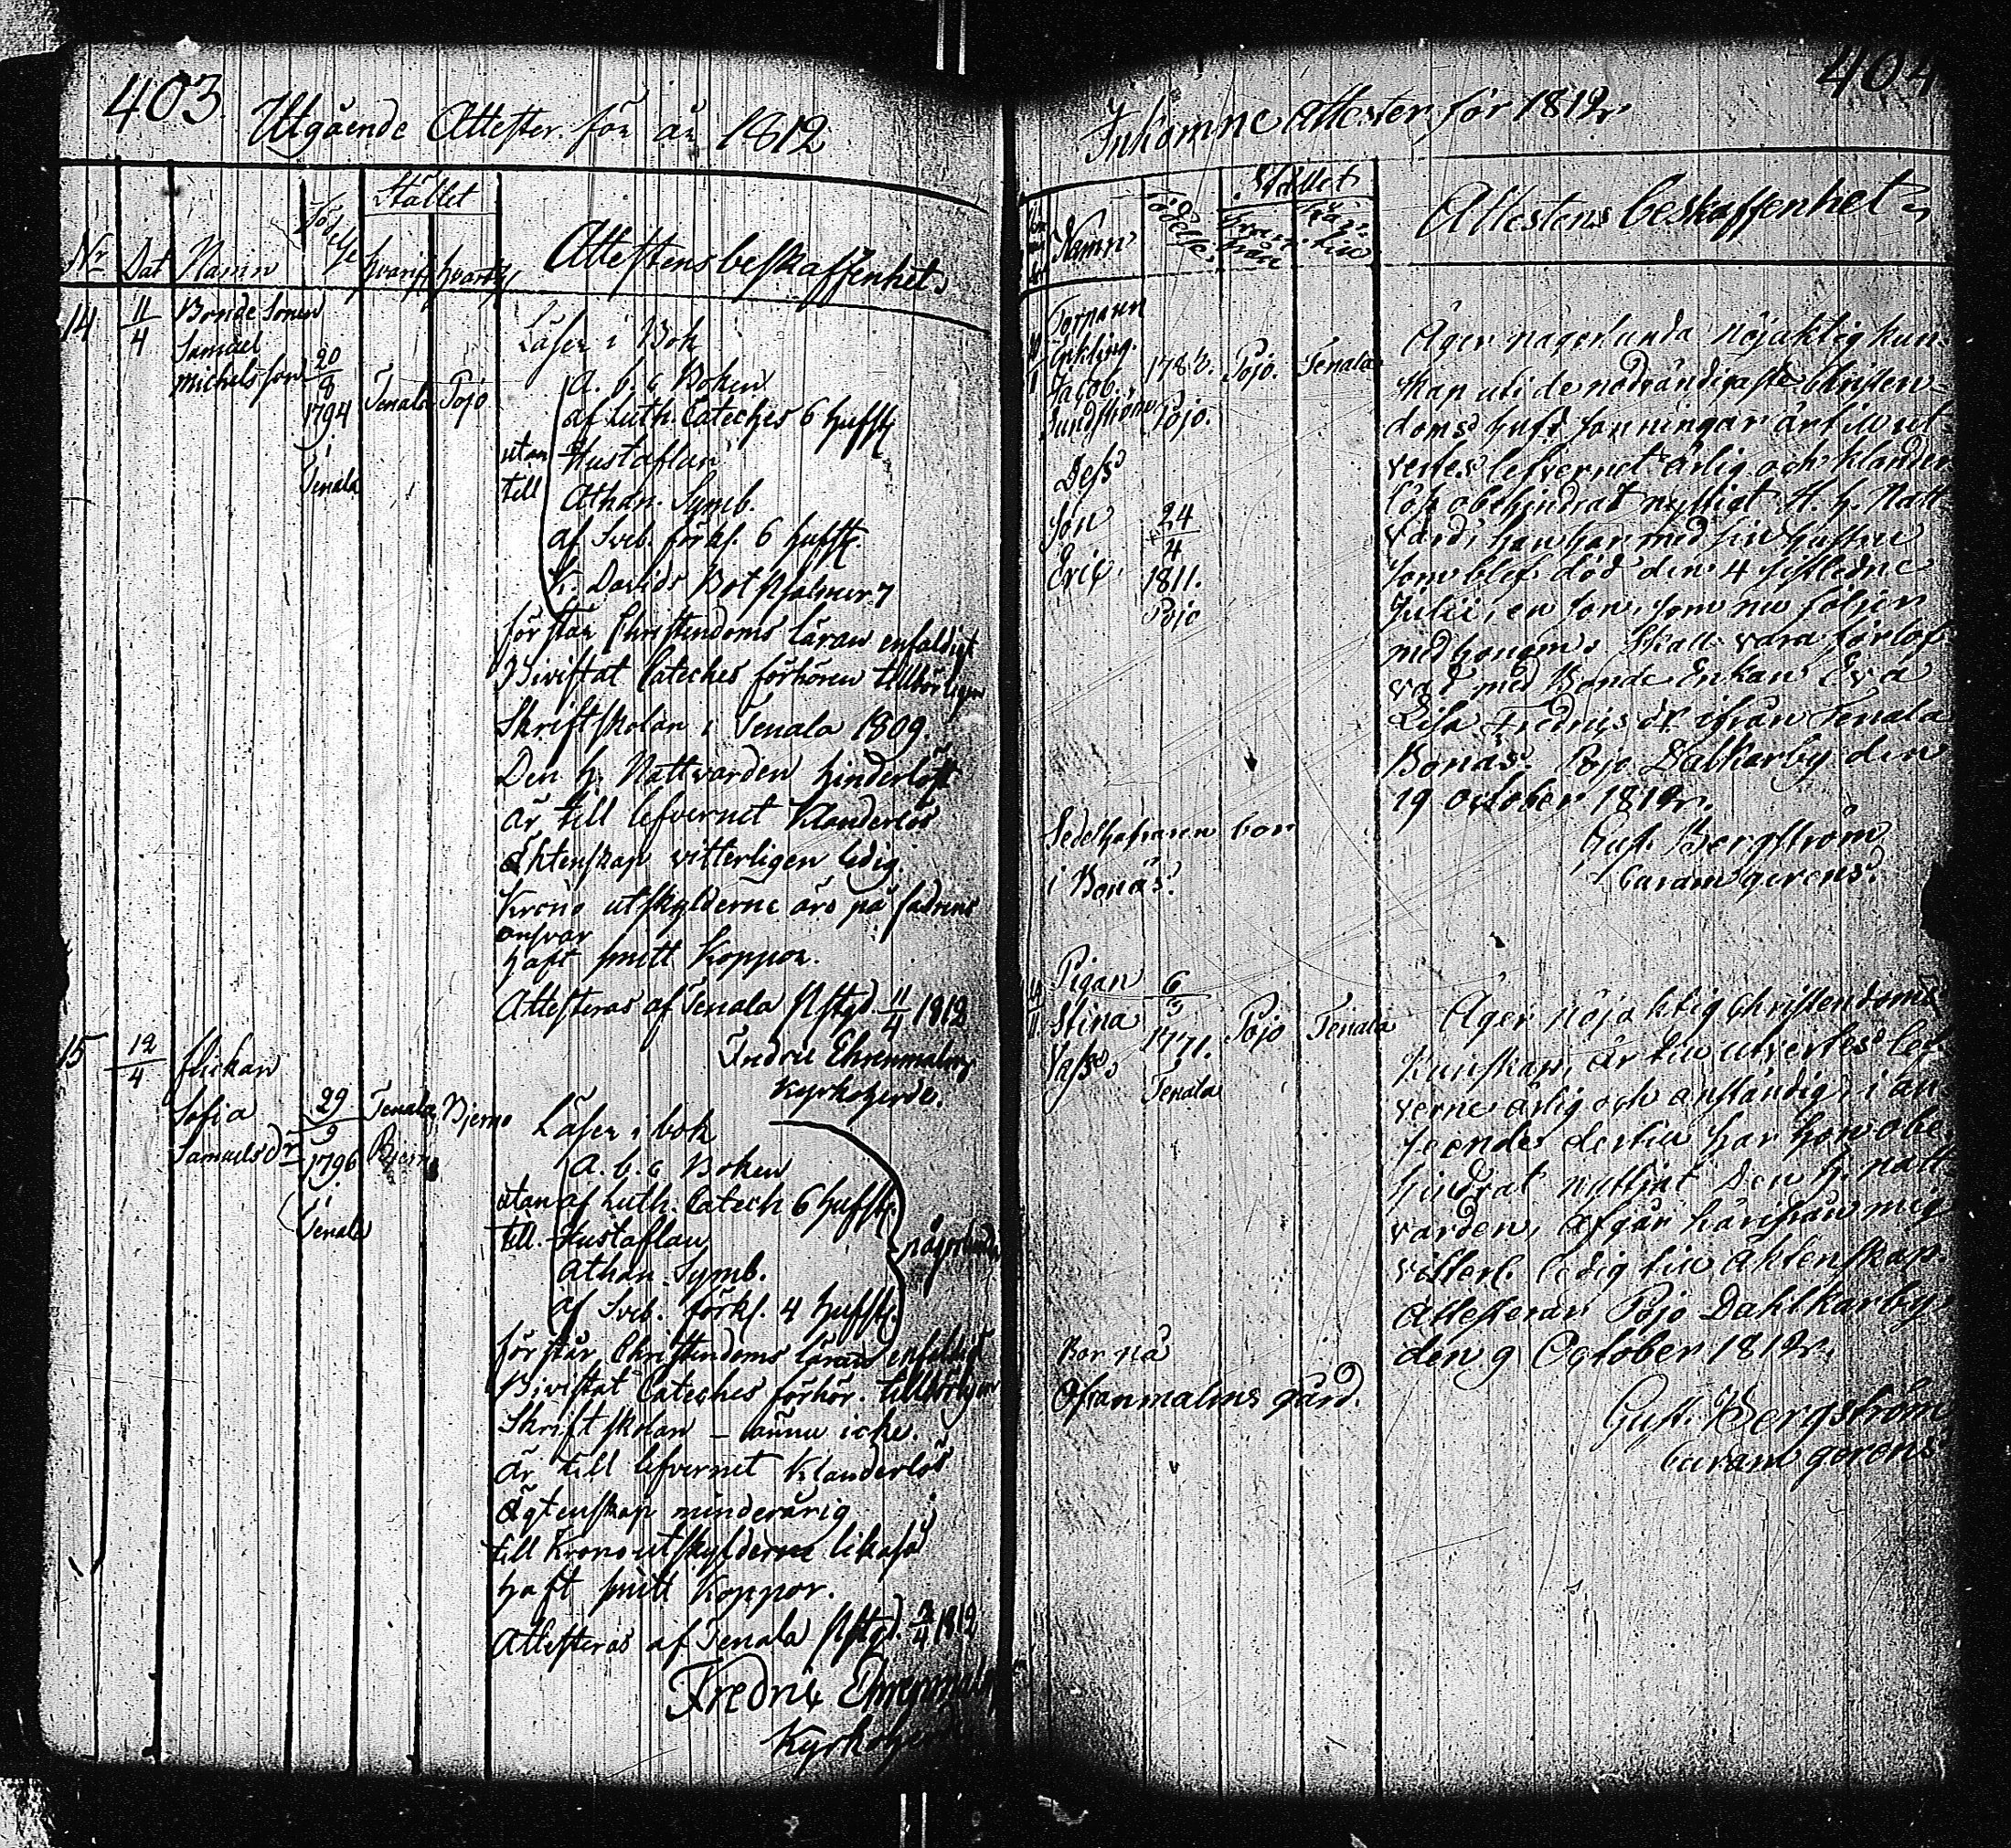 403
Utgående Attester för år 1812
Stället
Nr Dat Namn Födelse hvarif hvartil Attestens beskaffenhet.
14 11/4 Bonde Sonen
Samuel
Michelsson 20/8 1794 i Tenala Tenala Pojo
Läser i Bok
A. b. c Boken
af Luth. Cateches 6 hufst
utan Hustaflan
till Athan. Symb.
af Sveb. förkl. 6 hufst.
K. Davids Bot Psalmer 7
förstår Christendoms läran enfaldigt
Bivistat Cateches förhören tillbörligen
Skriftskolan i Tenala 1809.
Den h. Nattvarden hinderlöst
är till lefvernet Klanderlös
Ektenskap vitterligen ledig.
Krono utskylderne äro på fadrens
ansvar
haft smitt Koppor.
Attesteras af Tenala Pstgd. 11/4 1812
Fredric Ehrenmalm
Kyrkoherde.
15 12/4 flickan
Sofia
Samuelsdr 29/9 1796 i Tenala Tenala Bjerno
Läser i bok
A. b. c Boken
utan af Luth. Catech 6 hufst.
till. Hustaflan någorlunda
Athan. Symb.
af Sveb. förkl. 4 hufst.
förstår Christendoms läran enfaldigt
Bivistat Cateches förhör. tillbörligen
Skriftskolan – ännu icke.
är till lefvernet Klanderlös
Ägtenskap minderårig
till Kronoutskylderne likaså
haft smitt Koppor.
Attesteras af Tenala Pstgd. 1812
Fredric Ehrenmalm
Kyrkoherde
404
Inkomne Attester för 1812.
Stället
Namn Födelse Ifrån Här till Attestens beskaffenhet
Torparen
Enkling.
Jacob
Sundström 178 Pojo. Pojo. Tenala
Dess
son 24/4
Eric. 1811.
Pojo
Äger någorlunda nöjaktig kun-
skap uti de nödvändigaste Christen-
doms hufd sanningar är til ut-
vertes lefvernet ärlig och klander
lös obehindrat nyttjat H. h. Natt-
vard, han har med sin hustru
som blef död den 4 sistledne
Julii, en son, som nu följer
med honom. Skall vara förlof-
vad med Bonde Enkan Eva
Lisa Fredricsdr ifrån Tenala
Bonäs. Pojo Dalkarby den
19 october 1812.
Gust. Bergström
curam gerens.
Sedelhafvaren bor
i Bonäs.
Pigan
Stina
Vass. 6/3 1771. Tenala Pojo Tenala
Äger nöjaktig Christendoms
Kunskap, är till utvertes lef-
verne ärlig och anständig, i an-
seende dertill har hon obe-
hindrat nyttjat Den h. natt-
varden, afgår härifrån mig
vitterl. ledig till äktenskap.
Attesterar Pojo Dahlkarby
den 9 October 1812.
Gust. Bergström
curam gerens
Bor på
Ofvanmalms gård.